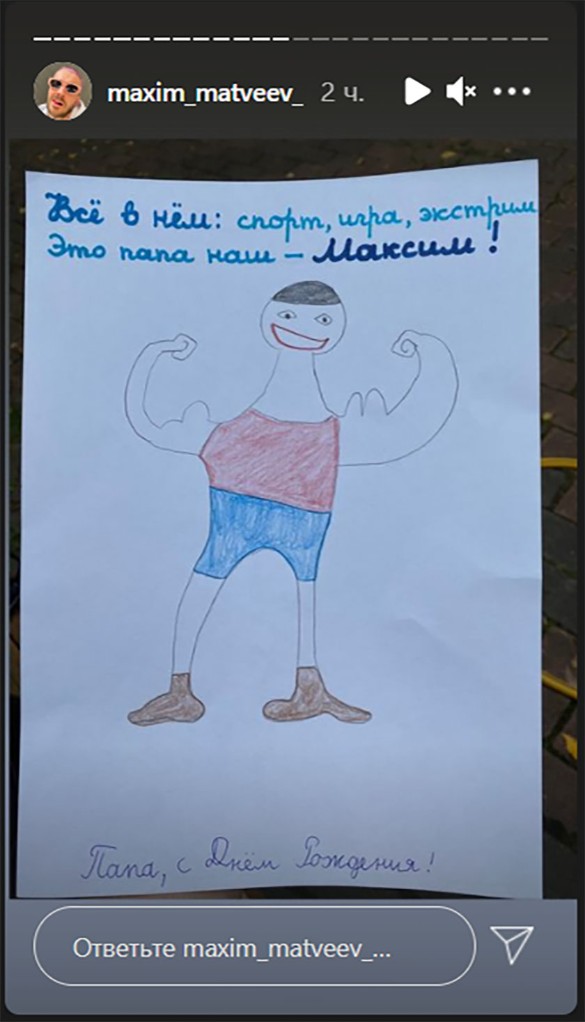 maxim_matveev_ 2 ч.
Всё в нём: спорт, игра, экстрим
Это папа наш – Максим!
Папа, с Днём Рождения!
Ответьте maxim_matveev_...